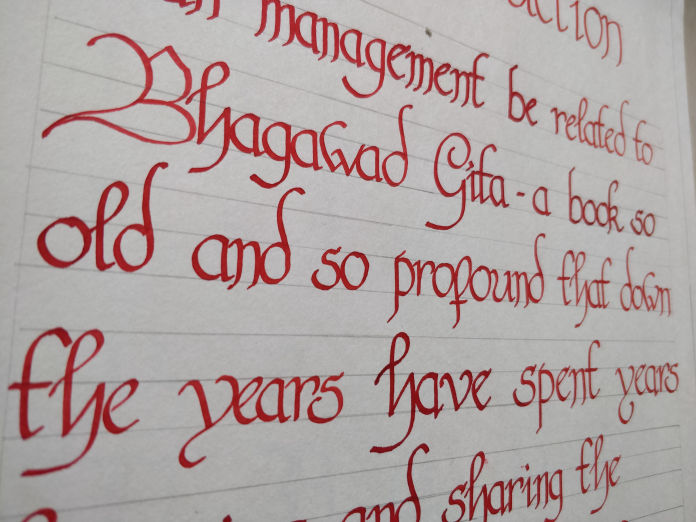 management be related to
Bhagawad Gita - a book so
old and so profound that down
the years have spent years
and sharing the